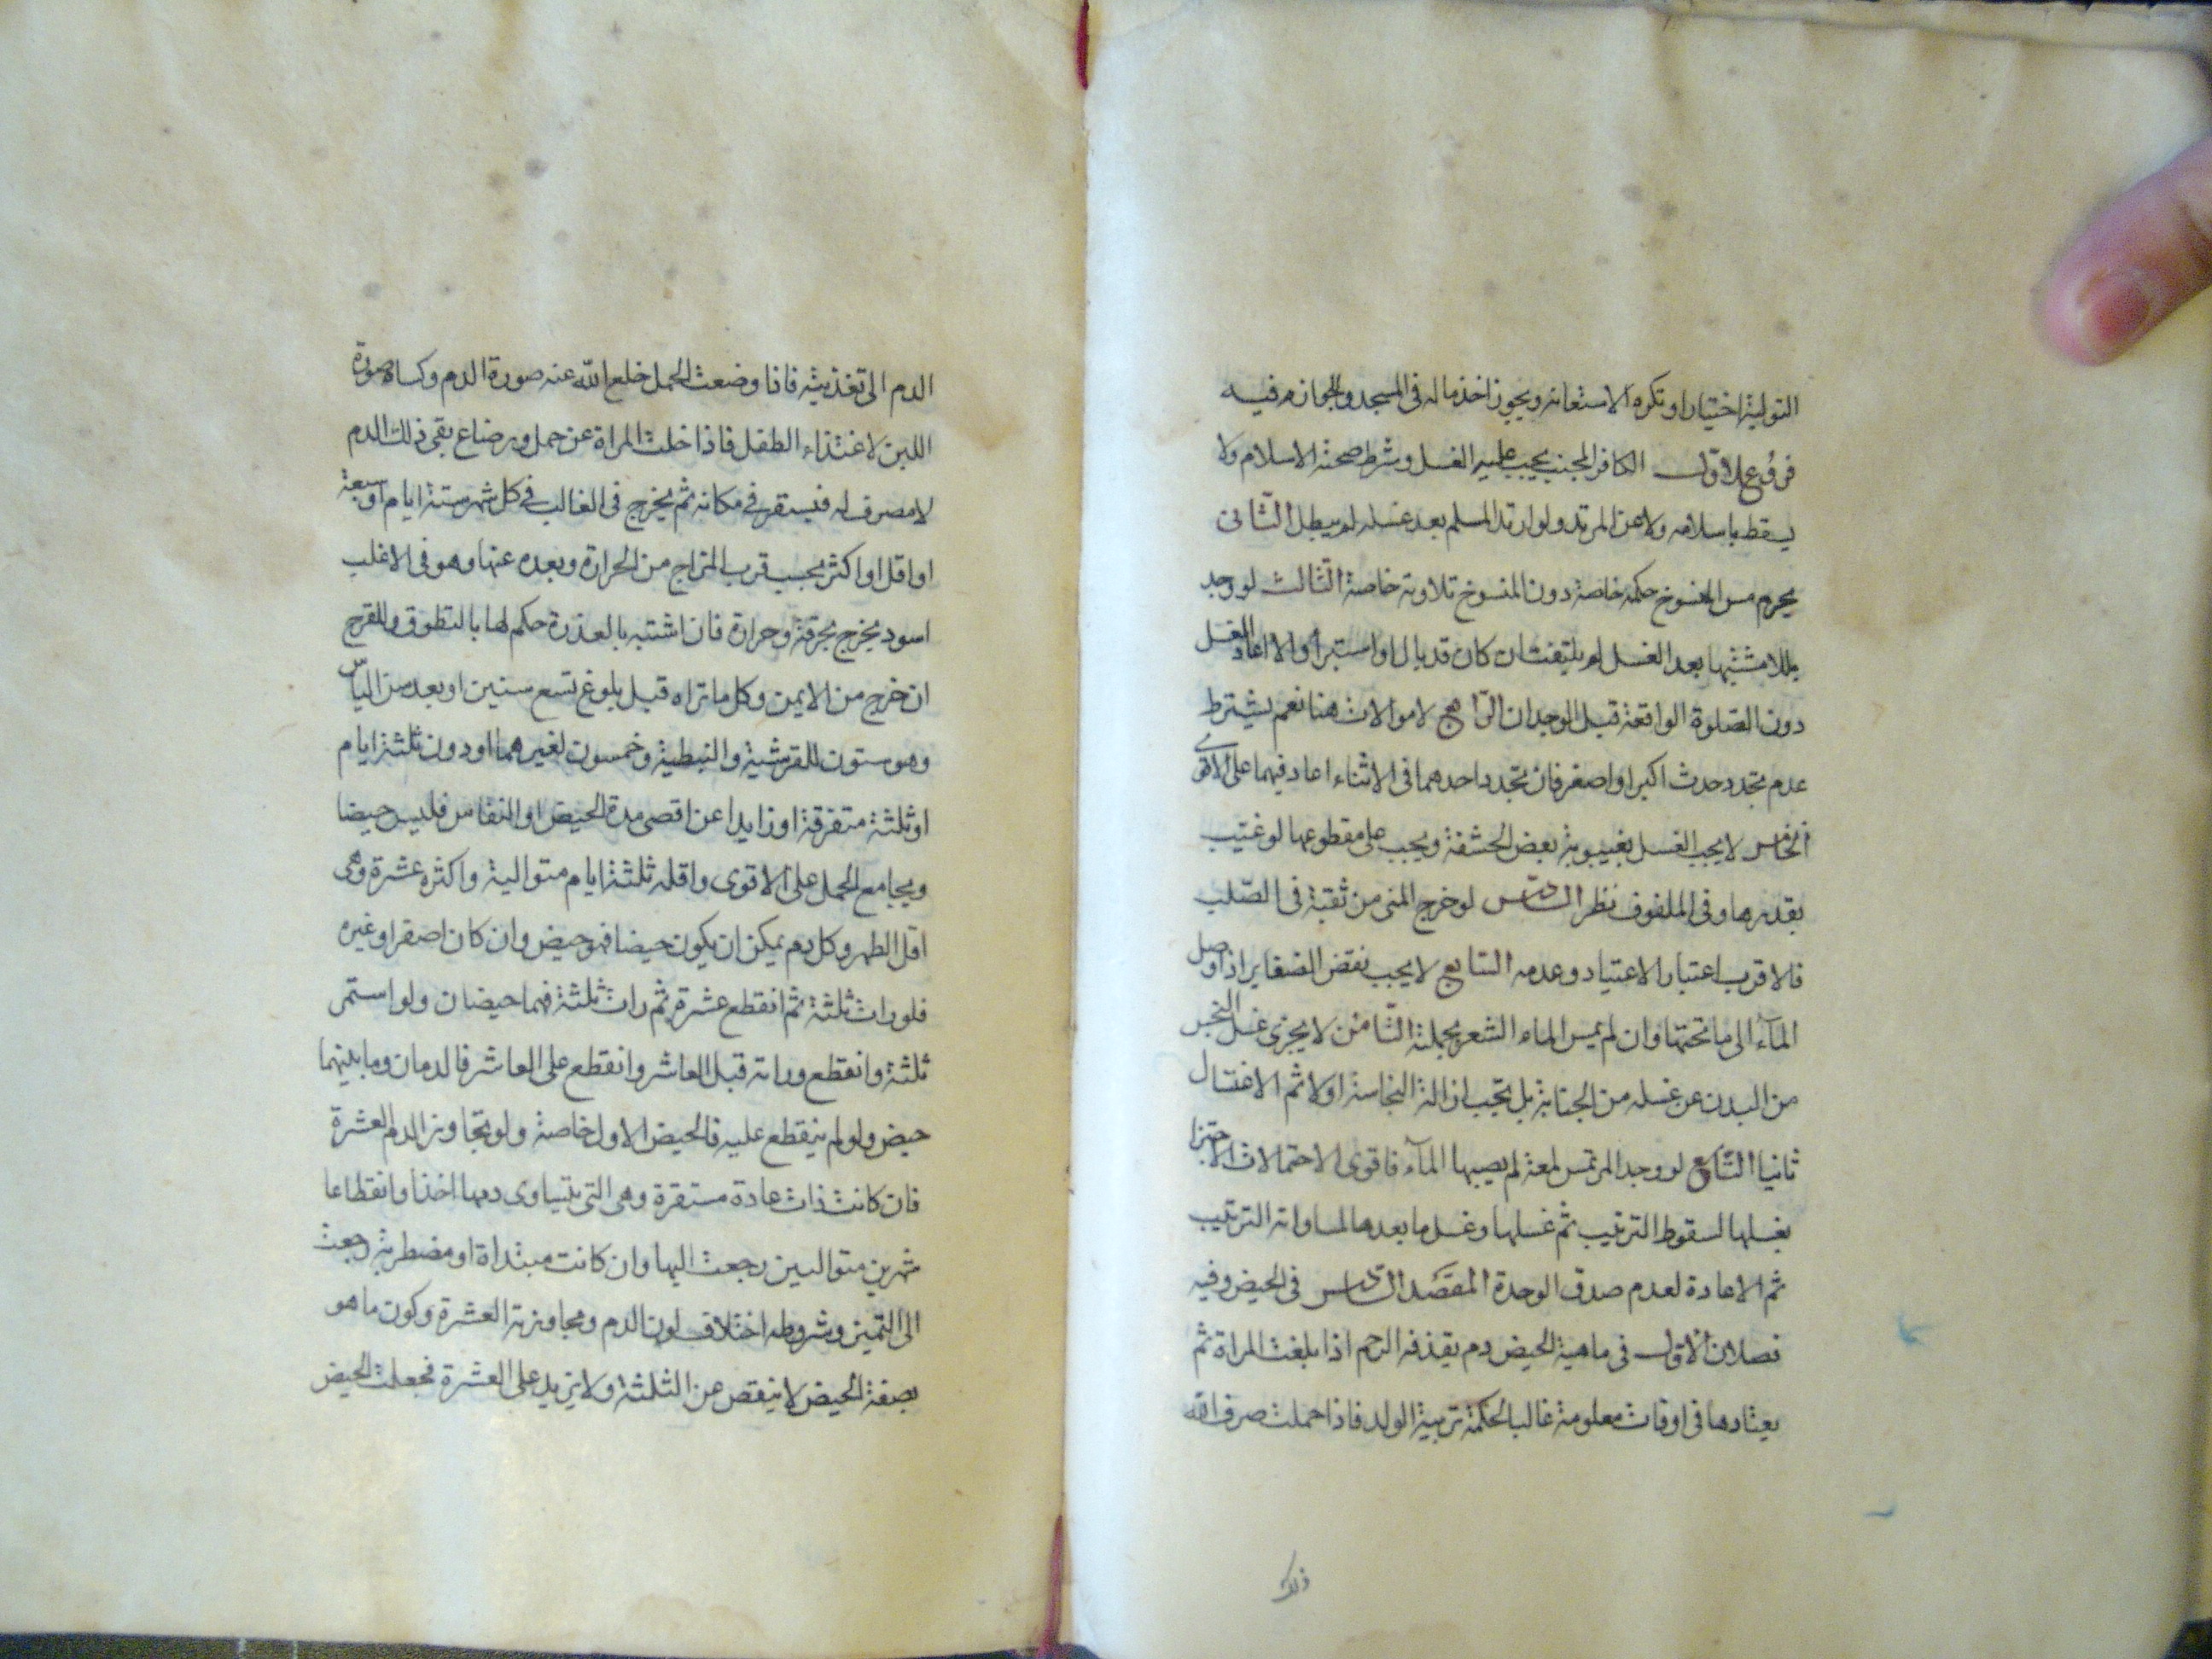 التولية اختيارا وتكره الاستعانة ويجوز اخذ ماله فى المسجد والجواز فيه
فروع الاول الكافر المجنب يجب عليه الغسل وشرط صحته الاسلام ولا
يسقط باسلامه ولا عن المرتد ولو ارتد المسلم بعد غسله لم يبطل الثانى
يحرم مس المنسوخ حكمه خاصة دون المنسوخ تلاوته خاصة الثالث لو وجد
بللا مشتبها بعد الغسل لم يلتفت ان كان قد بال او استبرأ والا اعاد الغسل
دون الصلوة الواقعة قبل الوجدان الرابع لا موالات هنا نعم يشترط
عدم تجدد حدث اكبر او اصغر فان تجدد احدهما فى الاثناء اعاد فيهما على الاقوى
الخامس لا يجب الغسل بغيبوبة بعض الحشفة ويجب على مقطوعها لو غيب
بقدرها وفى الملفوف نظر السادس لو خرج المنى من ثقبة فى الصلب
فالاقرب اعتبار الاعتياد وعدمه السابع لا يجب نقض الضفاير اذا وصل
المآء الى ما تحتها وان لم يمس الماء الشعر بجملته الثامن لا يجزى غسل النجس
من البدن عن غسله من الجنابة بل تجب ازالة النجاسة اولا ثم الاغتسال
ثانيا التاسع لو وجد المرتمس لمعة لم يصبها المآء فاقوى الاحتمالات الاجتزا
بغسلها لسقوط الترتيب ثم غسلها وغسل ما بعدها لمساواته الترتيب
ثم الاعادة لعدم صدق الوحدة المقصد السادس فى الحيض وفيه
فصلان الاول فى ماهية الحيض دم يقذفه الرحم اذا بلغت المراة ثم
يعتادها فى اوقات معلومة غالبا لحكمة تربية الولد فاذا حملت صرف الله
ذلك
الدم الى تغذيته فاذا وضعت الحمل خلع الله عنه صورة الدم وكساه صورة
اللبن لاغتذاء الطفل فاذا خلت المراة عن حمل ورضاع بقى ذلك الدم
لا مصرف له فيستقر فى مكانه ثم يخرج فى الغالب فى كل شهر ستة ايام او سبعة
او اقل او اكثر بحسب قرب المزاج من الحرارة وبعده عنها وهو فى الاغلب
اسود يخرج بحرقة وحرارة فان اشتبه بالعذرة حكم لها بالتطوق وللقرح
ان خرج من الايمن وكل ما تراه قبل بلوغ تسع سنين او بعد سن الياس
وهو ستون للقرشية والنبطية وخمسون لغيرهما او دون ثلثة ايام
او ثلثة متفرقة او زايدا عن اقصى مدة الحيض او النفاس فليس حيضا
ويجامع الحمل على الاقوى واقله ثلثة ايام متوالية واكثره عشرة وهى
اقل الطهر وكل دم يمكن ان يكون حيضا فهو حيض وان كان اصفر او غيره
فلو رات ثلثة ثم انقطع عشرة ثم رات ثلثة فهما حيضان ولو استمر
ثلثة وانقطع وراته قبل العاشر وانقطع على العاشر فالدمان وما بينهما
حيض ولو لم ينقطع عليه فالحيض الاول خاصة ولو تجاوز الدم العشرة
فان كانت ذات عادة مستقرة وهى التى يتساوى دمها اخذا وانقطاعا
شهرين متوالبين رجعت اليها وان كانت مبتداة او مضطربة رجعت
الى التميز وشروطه اختلاف لون الدم ومجاوزته العشرة وكون ما هو
بصفة الحيض لا ينقص عن الثلثة ولا يزيد على العشرة فجعلت الحيض